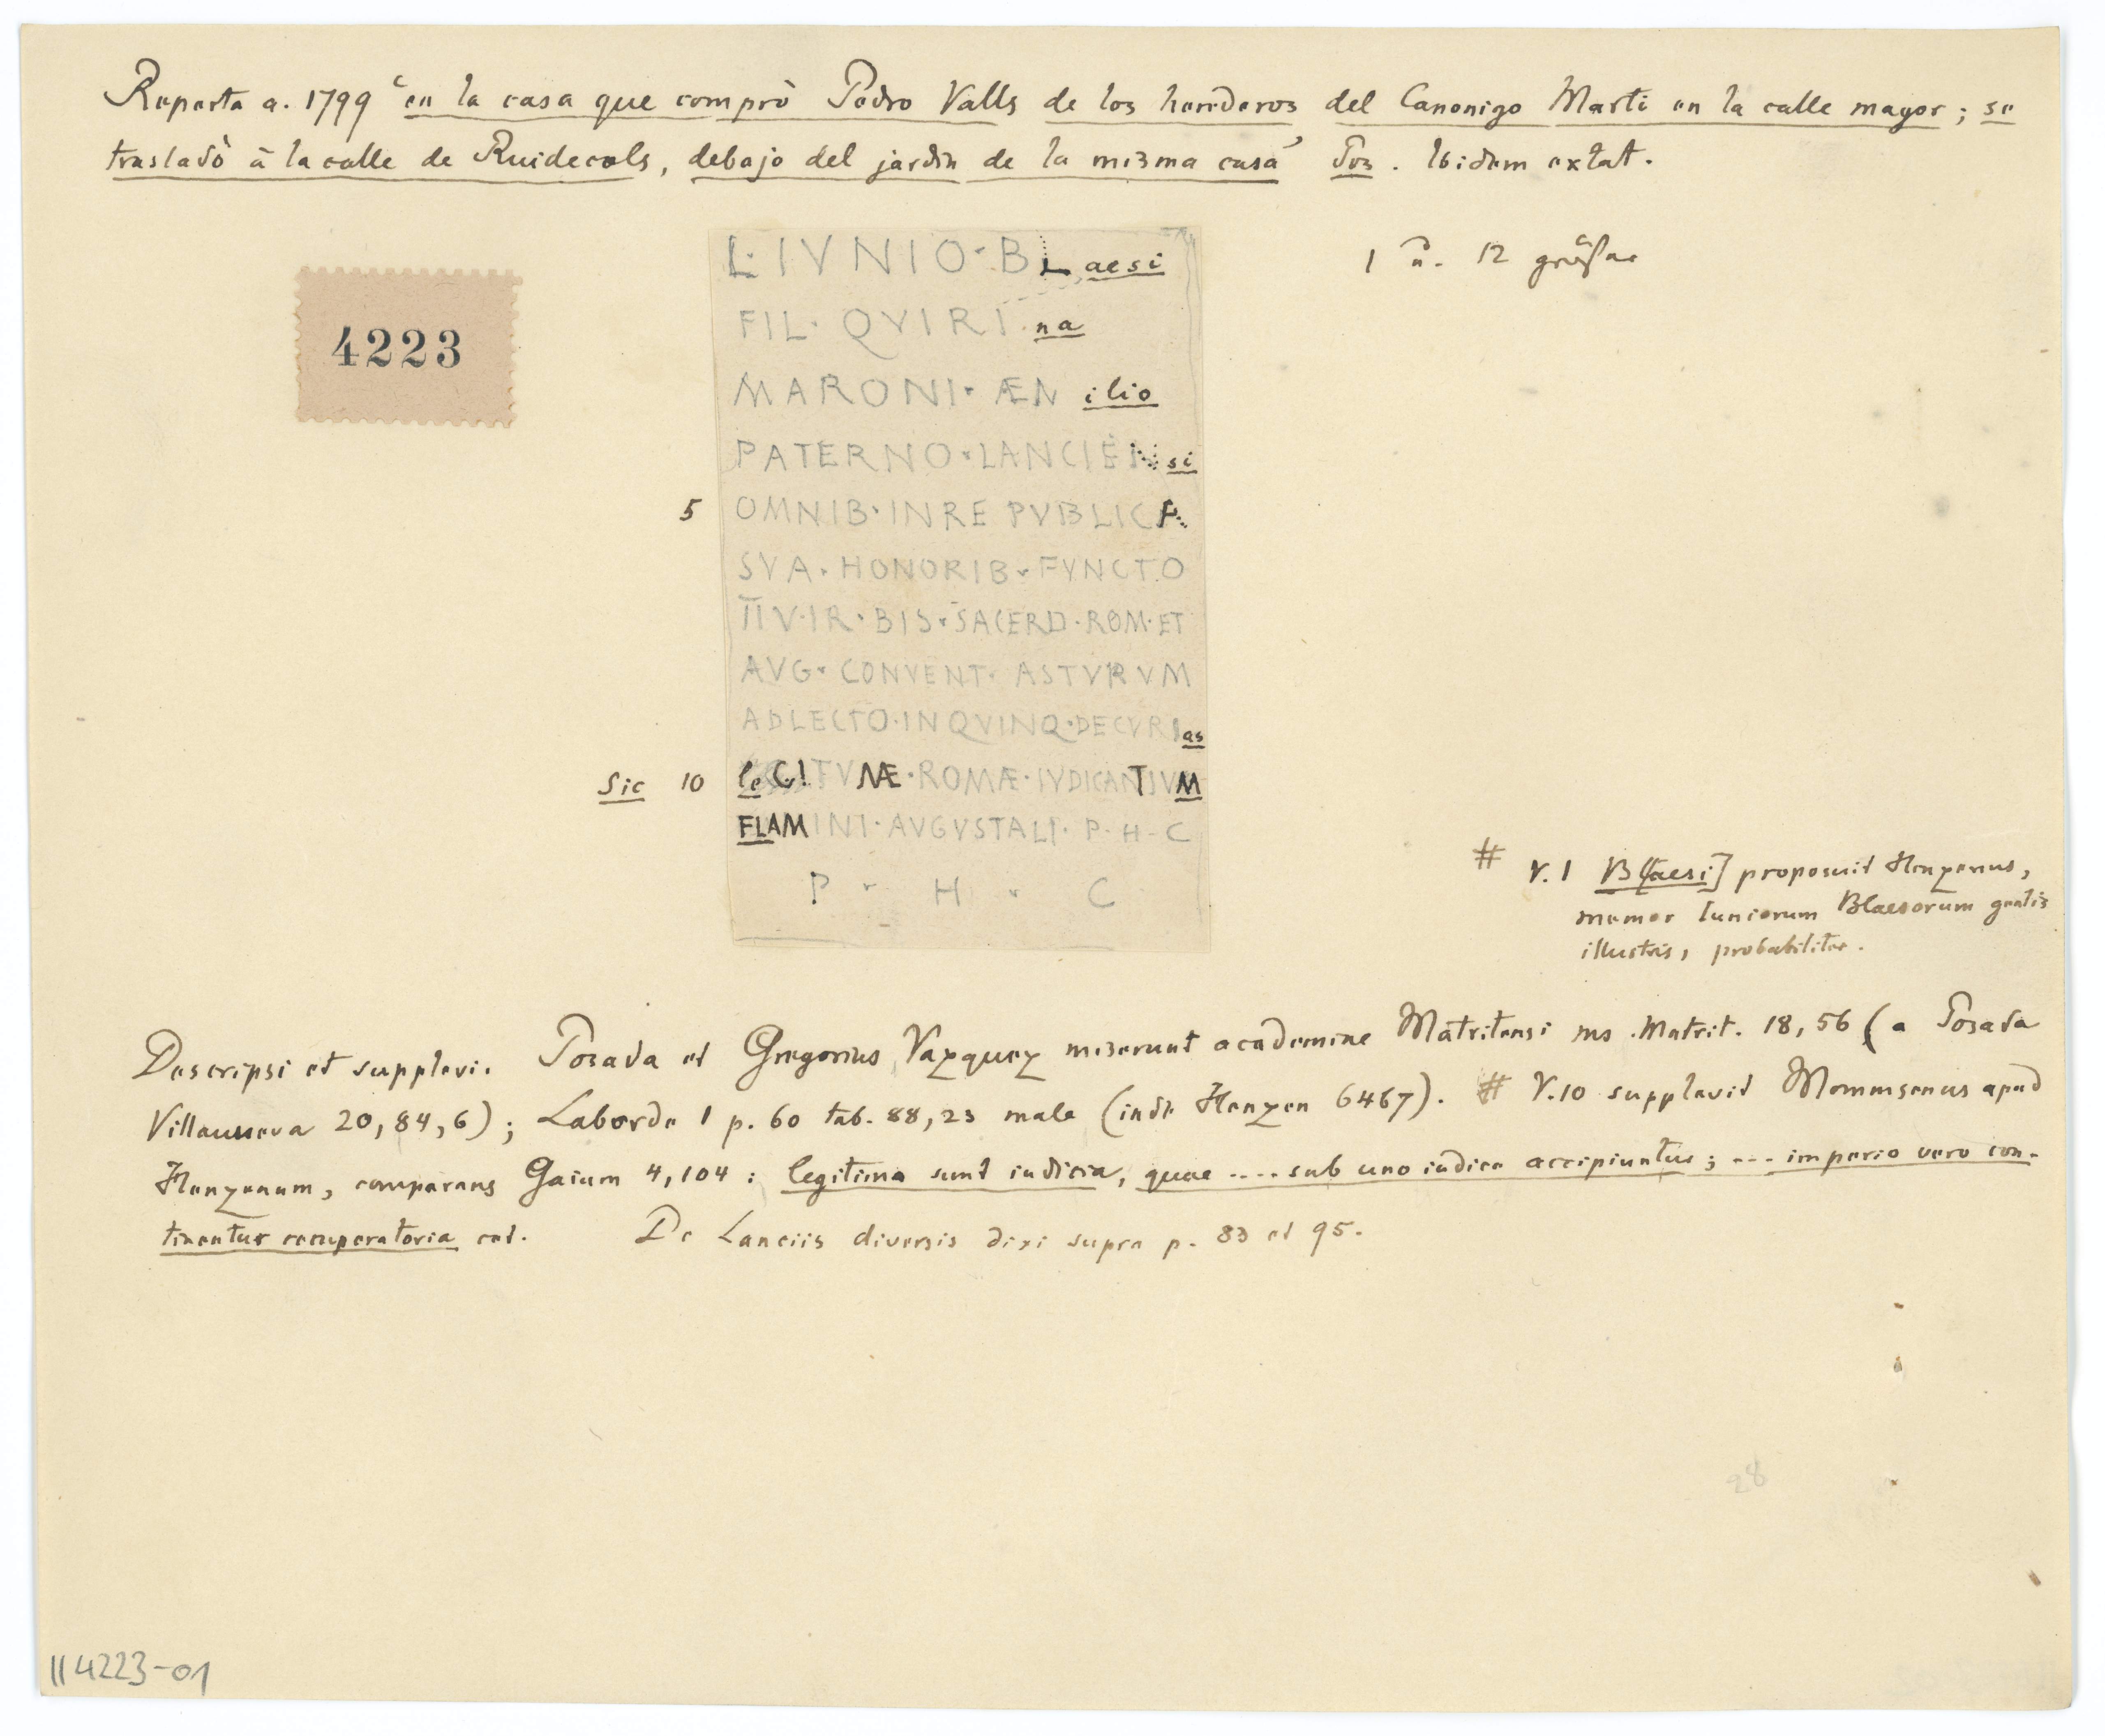 Reperta a. 1799 ‘en la casa que comprò Pedro Valls de los herederos del Canonigo Marti en la calle mayor; se
trasladò à la calle de Ruidecols, debajo del jardin de la misma casa’ Pos. Ibidem extat.
1 u. 12 größer
4223
L·IVNIO·BLaesi
FIL·QVIRIna
MARONI·ÆMilio
PATERNO·LANCIENsi
5 OMNIB·INRE PVBLICA
SVA·HONORIB·FVNCTO
IIV·IR·BIS·SACERD·ROM·ET
AVG·CONVENT·ASTVRVM
ADLECTO·INQVINQ·DECVRIas
Sic 10 leGITVMÆ·ROMÆ·IVDICANTIVM
FLAMINI·AVGVSTALI·P·H·C
P · H · C
# V. 1 B[laesi] proposuit Henzenus,
memor Iuniorum Blaesorum gentis
illustris, probabiliter.
Descripsi et supplevi. Posada et Gregorius Vazquez miserunt academiae Matritensi ms. Matrit. 18, 56 (a Posada
Villanueva 20, 84, 6); Laborde 1 p. 60 tab. 88, 23 male (inde Henzen 6467). # V. 10 supplevit Mommsenus apud
Henzenum, comparans Gaium 4, 104: legitima sunt iudicia, quae .... sub uno iudice accipiuntur; --- imperio vero con-
tinentur recuperatoria cet. De Lanciis diversis dixi supra p. 83 et 95.
28
II 4223-01